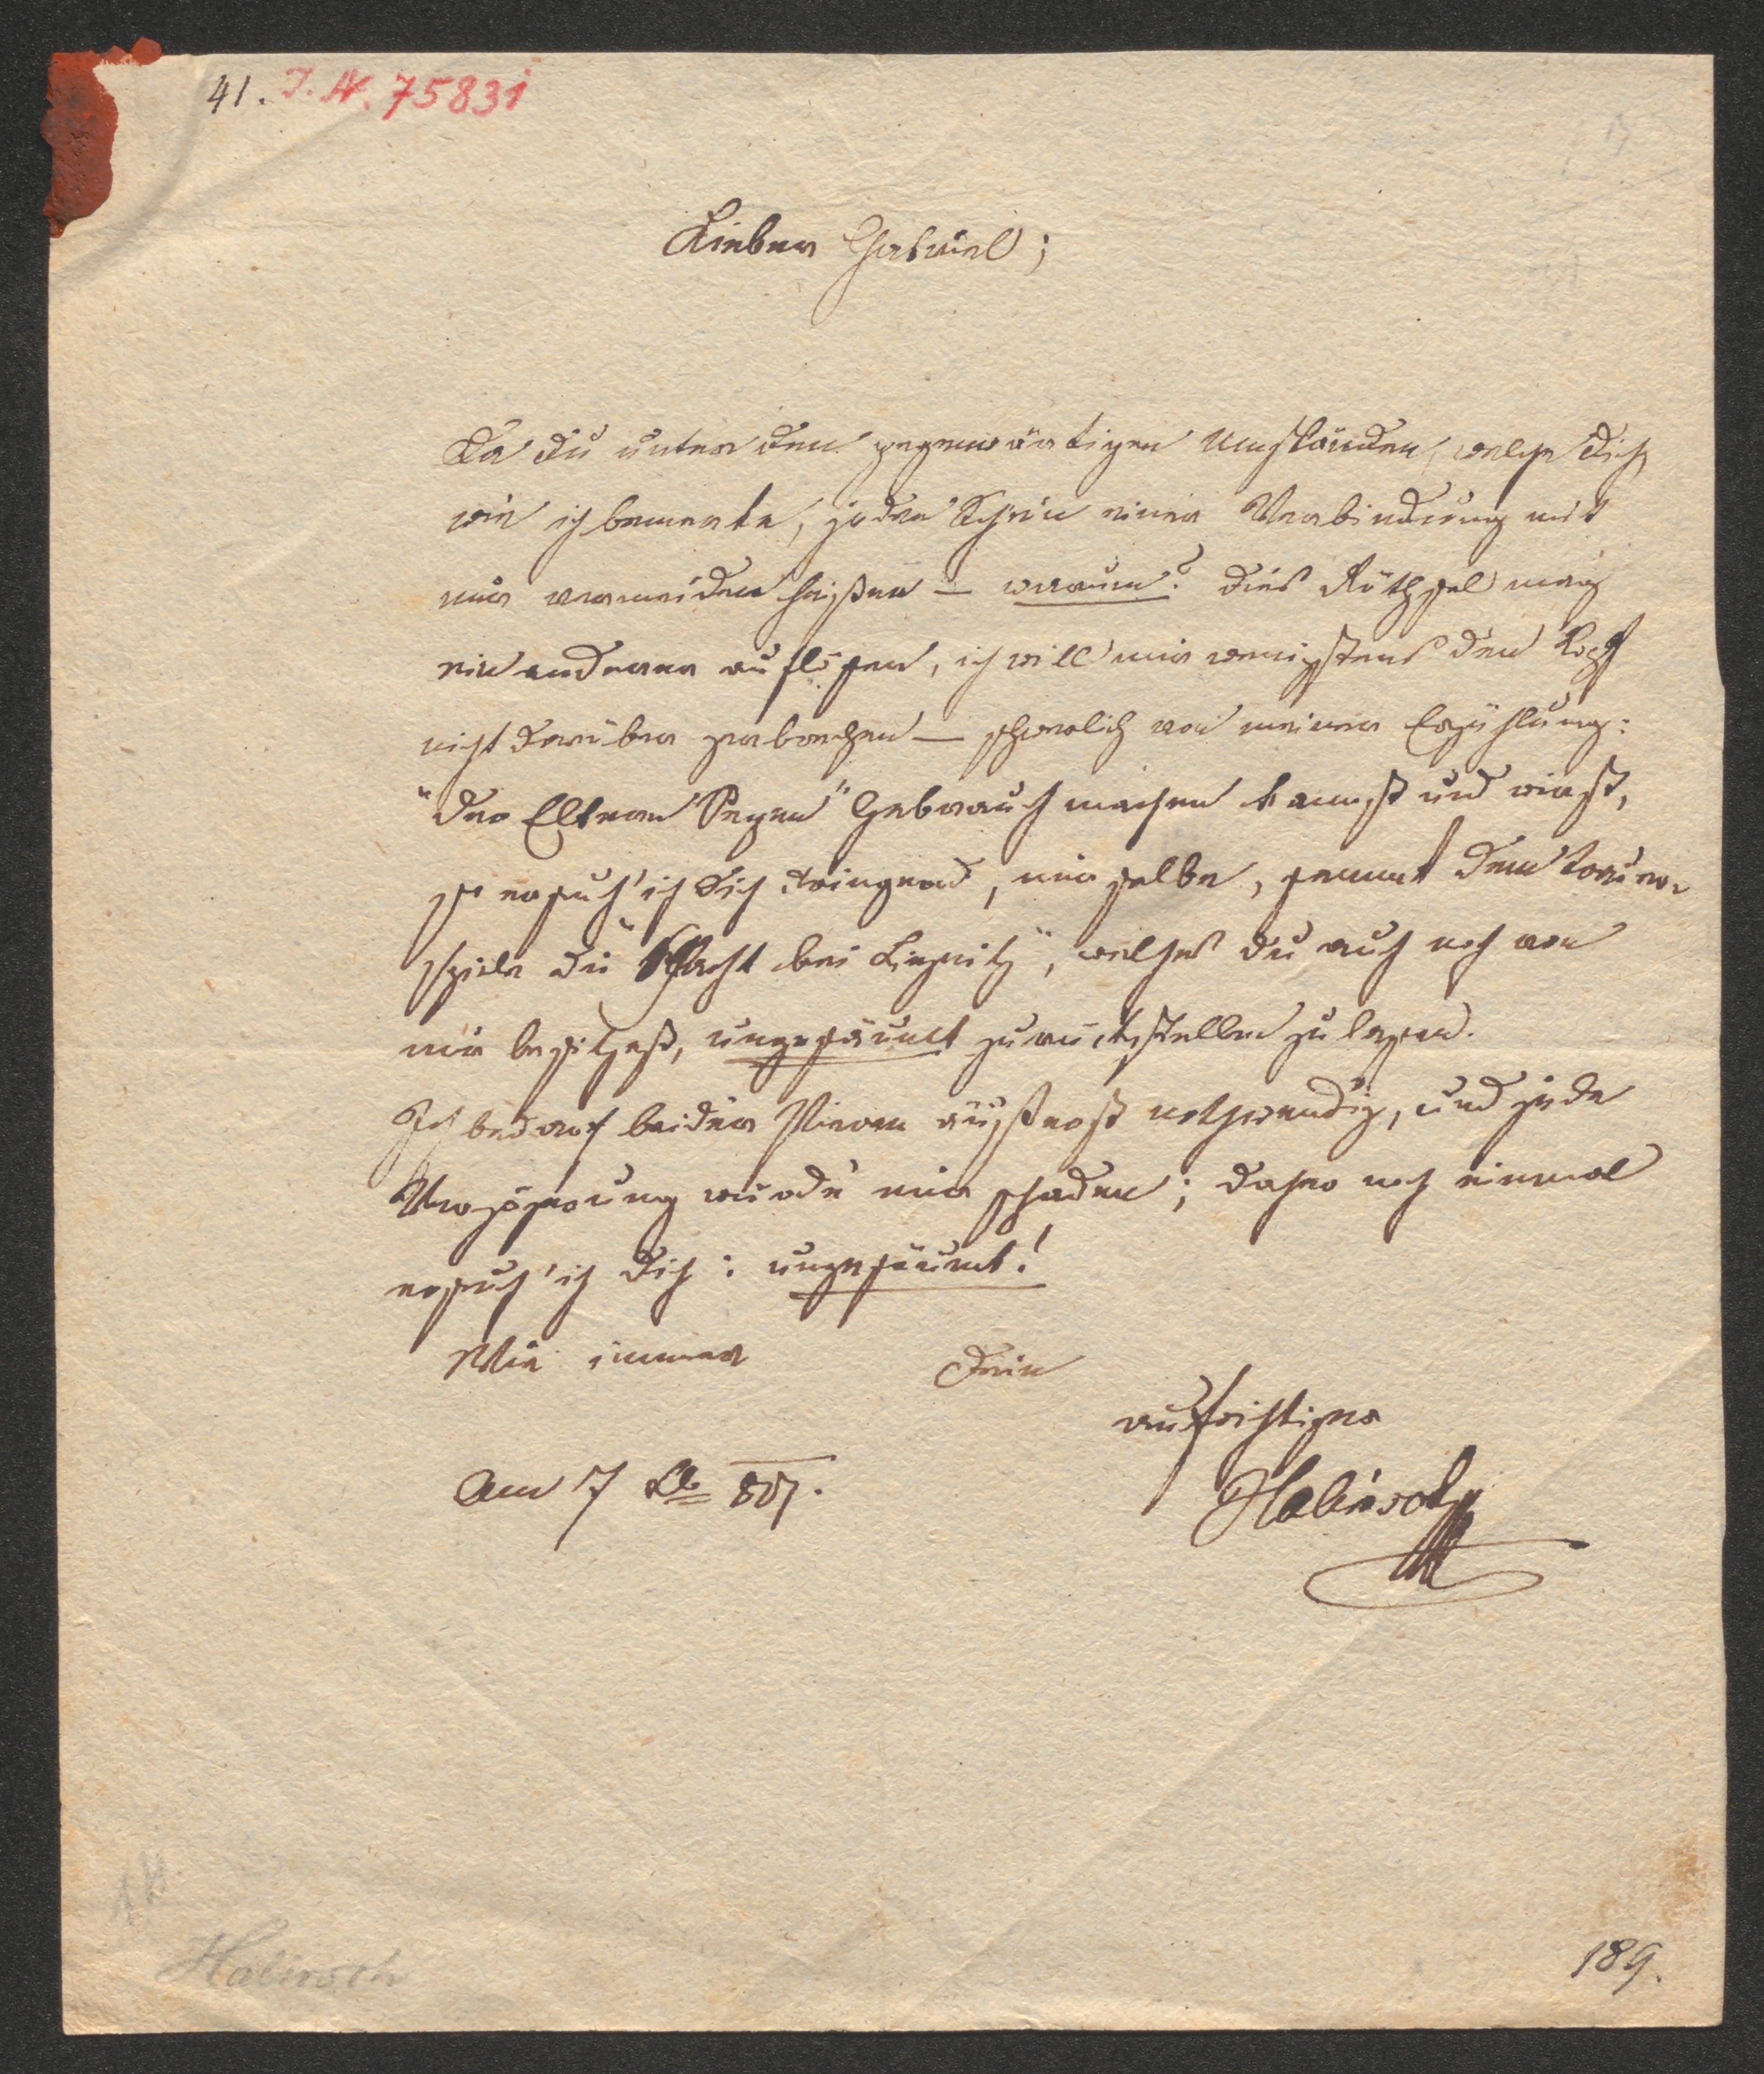 41. I. N. 75831
Lieber Gabriel;
Da du unter den gegenwärtigen Umständen, welche dich
wie ich bemerke, jeden Schein einer Verbindung mit
mir vermeiden heißen – warum? dies Räthsel mag
ein anderer auflösen, ich will mir wenigstens den Kopf
nicht darüber zerbrechen – schwerlich von meiner Erzählung:
"der Eltern Segen" Gebrauch machen kannst und wirst,
so ersuch' ich dich dringend, mir selbe, sammt dem Trauer-
spiele die "Schlacht bei Liegnitz", welches du auch noch von
mir besitzest, ungesäumt zurückstellen zu lassen.
Ich bedarf beider Piecen äußerst nothwendig, und jede
Verzögerung würde mir schaden; daher noch einmal
ersuch' ich dich: ungesäumt!
Wie immer Dein
aufrichtiger
Am 7
Halirsch
Halirsch
189.